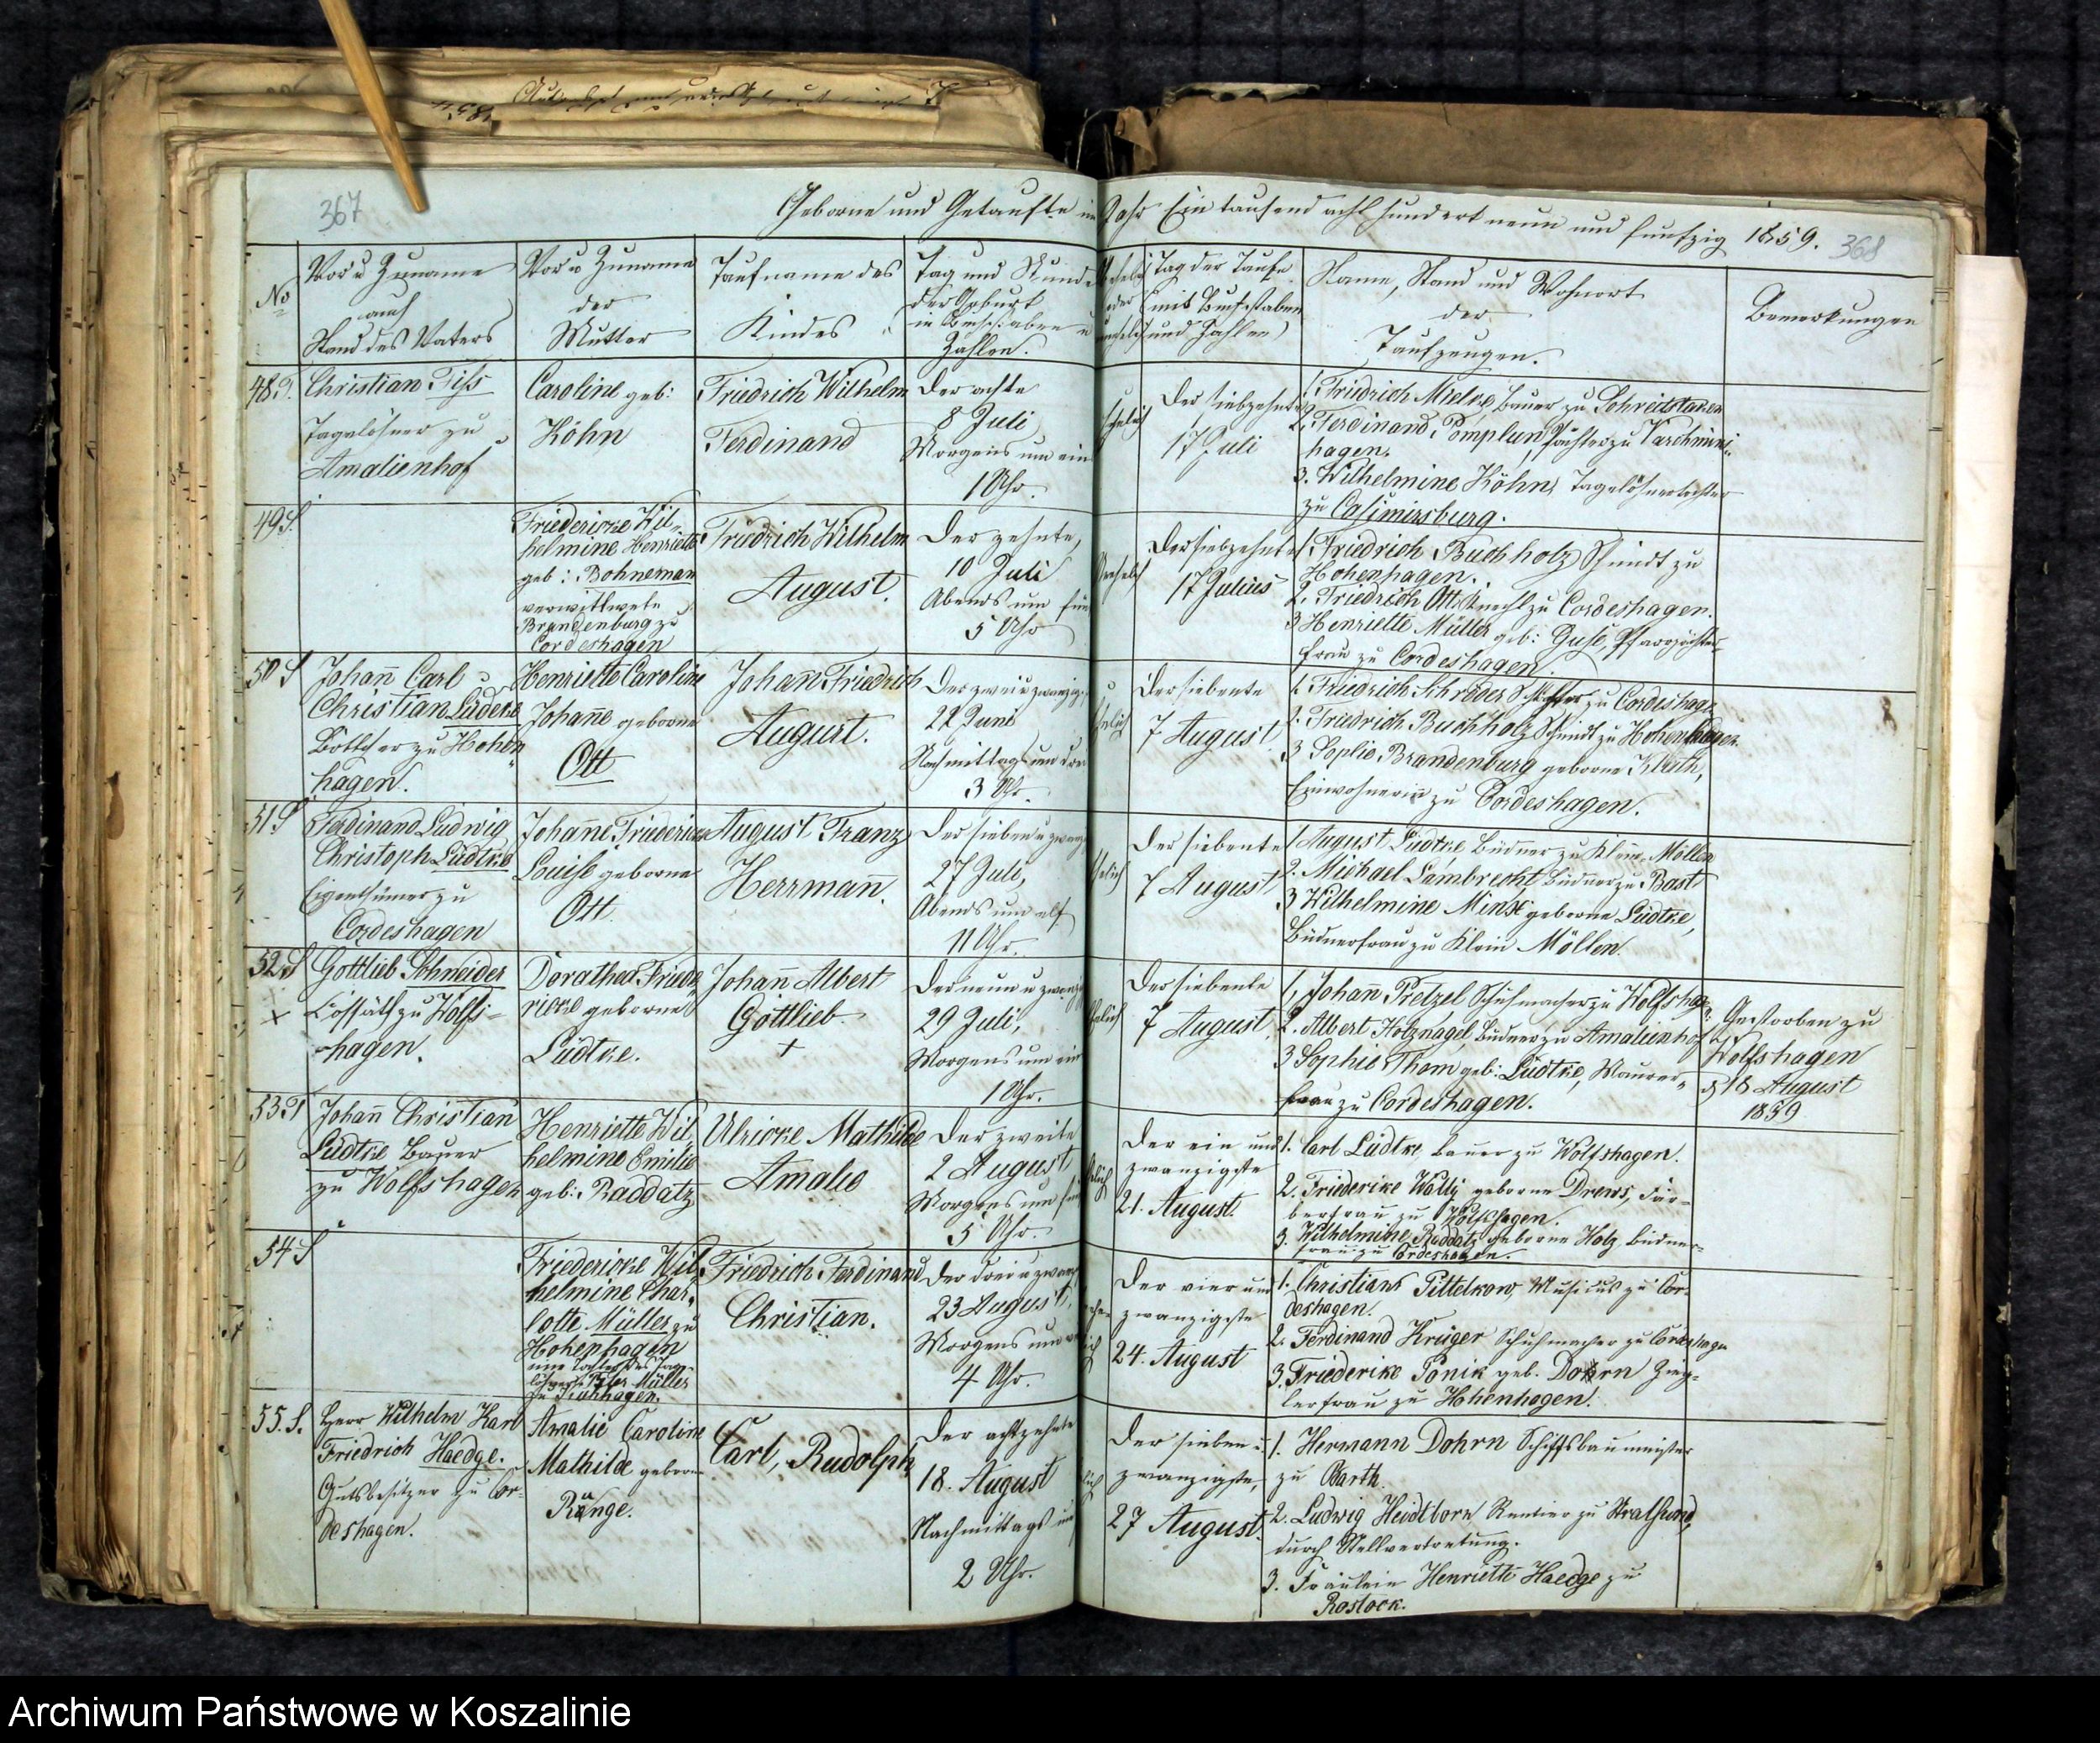 367
Geborne und Getaufte im Jahr Ein tausend acht hundert neun und funfzig 1859.
368
No
Vor u Zuname
auch
Stand des Vaters
Vor u Zuname
der
Mutter
Taufname des
Kindes
Tag und Stunde
der Geburt
in Buchstaben u
Zahlen.
Tag der Taufe
(mit Buchstaben
und Zahlen)
Name, Stand und Wohnort
der
Taufzeugen.
Bemerkungen
48
Christian Tiss
Tagelöhner zu
Amalienhof
Caroline geb:
Köhn
Friedrich Wilhelm
Ferdinand
Der achte
8 Juli
Morgens um ein
1 Uhr.
ehelich
Der siebzehnte
17 Juli
1. Friedrich Mielke, Bauer zu Schreitstaken
2. Ferdinand Pomplun, Pächter zu Varchmins-
hagen.
3. Wilhelmine Köhn, Tagelöhnertochter
zu Casimirsburg.
49 S.
Friedericke Wil-
helmine Henriette
geb: Bohneman
verwittwete
Brandenburg zu
Cordeshagen
Friedrich Wilhelm
August.
Der zehnte,
10 Juli
Abends um fün
5 Uhr
Unehelich
Der siebzehnte
17 Julius
1. Friedrich Buchholz Schmidt zu
Hohenhagen.
2. Friedrich Ott, Knecht zu Cordeshagen.
3 Henriette Müller geb: Guse, Pfarrpächter-
frau zu Cordeshagen.
50 S
Johann Carl
Christian Lüdtke
Böttcher zu Hohen-
hagen.
Henriette Caroline
Johanne geborne
Ott
Johann Friedrich
August.
Der zwei u zwanzig
22 Juni
Nachmittags um drei
3 Uhr.
Ehelich
Der siebente
7 August
1. Friedrich Schröder Schäfer zu Cordeshagen
2. Friedrich Buchholz Schmidt zu Hohenhagen
3 Sophie Brandenburg geborne Kluth,
Einwohnerin zu Cordeshagen.
51 S
Ferdinand Ludwig
Christoph Lüdtke
Eigenthümer zu
Cordeshagen
Johanne Friedericke
Louise geborne
Ott.
August Franz
Herrmann.
Der sieben u zwanz
27 Juli,
Abends um elf
11 Uhr.
Ehelich
Der siebente
7 August
1. August Lüdtke Büdner zu Klein Möllen
2. Michael Lambrecht, Büdner zu Bast
3 Wilhelmine Minx geborne Lüdtke,
Büdnerfrau zu Klein Möllen.
52 S
Gottlieb Schneider
Cossäth zu Wolfs-
hagen.
Dorathea Friede-
ricke geborne
Lüdtke.
Johann Albert
Gottlieb
+
Der neun u zwanzig
29 Juli,
Morgens um ein
1 Uhr.
Ehelich
Der siebente
7 August.
1, Johann Pretzel Schuhmacher zu Wolfshag-
2. Albert Holznagel Büdner zu Amalienhof
3 Sophie Thom geb: Lüdtke, Maurer-
frau zu Cordeshagen.
Gestorben zu
Wolfshagen
d 18 August
1859
53
Johann Christian
Lüdtke Bauer
zu Wolfshagen
Henriette Wil-
helmine Emilie
geb: Raddatz
Ulricke Mathilde
Amalie
Der zweite
2 August
Morgens um fün
5 Uhr.
Der ein und
zwanzigste
21. August.
1. Carl Lüdtke, Bauer zu Wolfshagen.
2. Friederike Wally geborne Drews, Fär-
berfrau zu Wolfshagen.
3. Wilhelmine Raddatz geborne Holz, Büdner-
frau zu Cordeshagen.
54 S
Friedericke Wil-
helmine Char-
lotte Müller zu
Hohenhagen
eine Tochter des Tage-
löhners Peter Müller
Friedrich Ferdinand
Christian.
Der drei u zwanz
23 August,
Morgens um
4 Uhr.
Der vier und
zwanzigste
24. August
1. Christian Tittelkow, Musicus zu Cor-
deshagen.
2. Ferdinand Krüger Schuhmacher zu Cordeshagen
3. Friederike Ponik geb. Dohrn Zieg-
lerfrau zu Hohenhagen.
55. S.
Herr Wilhelm Karl
Friedrich Haedge.
Gutsbesitzer zu Cor-
deshagen.
Amalie Caroline
Mathilde geborne
Runge.
Carl, Rudolph
Der achtzehnte
18. August
Nachmittags um
2 Uhr.
Der sieben u
zwanzigste,
27 August.
1. Hermann Dohrn Schiffsbaumeister
zu Barth.
2. Ludwig Heidtborn Rentier zu Stralsund,
durch Stellvertretung.
3. Fräulein Henriette Haedge zu
Rostock.
Archiwum Państwowe w Koszalinie